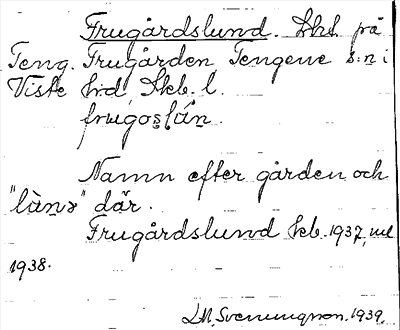 Frugårdslund. Lht på
Teng. Frugården Tengene s:n i
Viste hrd, Skb. l.
frugoslán.
Namn efter gården och
"làna" där.
Frugårdslund kb. 1937, ul
1938.
L.M. Svenungson. 1939.